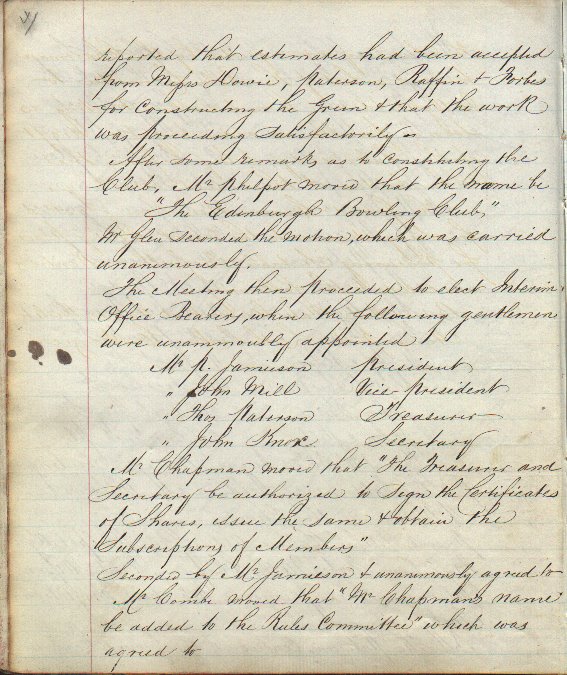 reported that estimates had been accepted
from Messrs Howie, Paterson, Raffin & Forbes
for Constructing the Green & that the work
was proceeding Satisfactorily –
After some remarks as to constituting the
Club, Mr Philpot moved that the name be
"The Edinburgh Bowling Club,"
Mr Glen Seconded the Motion, which was carried
unanimously.
The Meeting then proceeded to elect Interim
Office Bearers, when the following gentlemen
were unanimously appointed
Mr P. Jamieson President
" John Mill Vice President
" Thos Paterson Treasurer
" John Knox Secretary
Mr Chapman moved that "The Treasurer and
Secretary be authorized to Sign the Certificates
of Shares, issue the same & obtain the
Subscriptions of Members"
Seconded by Mr Jamieson & unanimously agreed to
Mr Combe moved that "Mr Chapmans name
be added to the Rules Committee" which was
agreed to